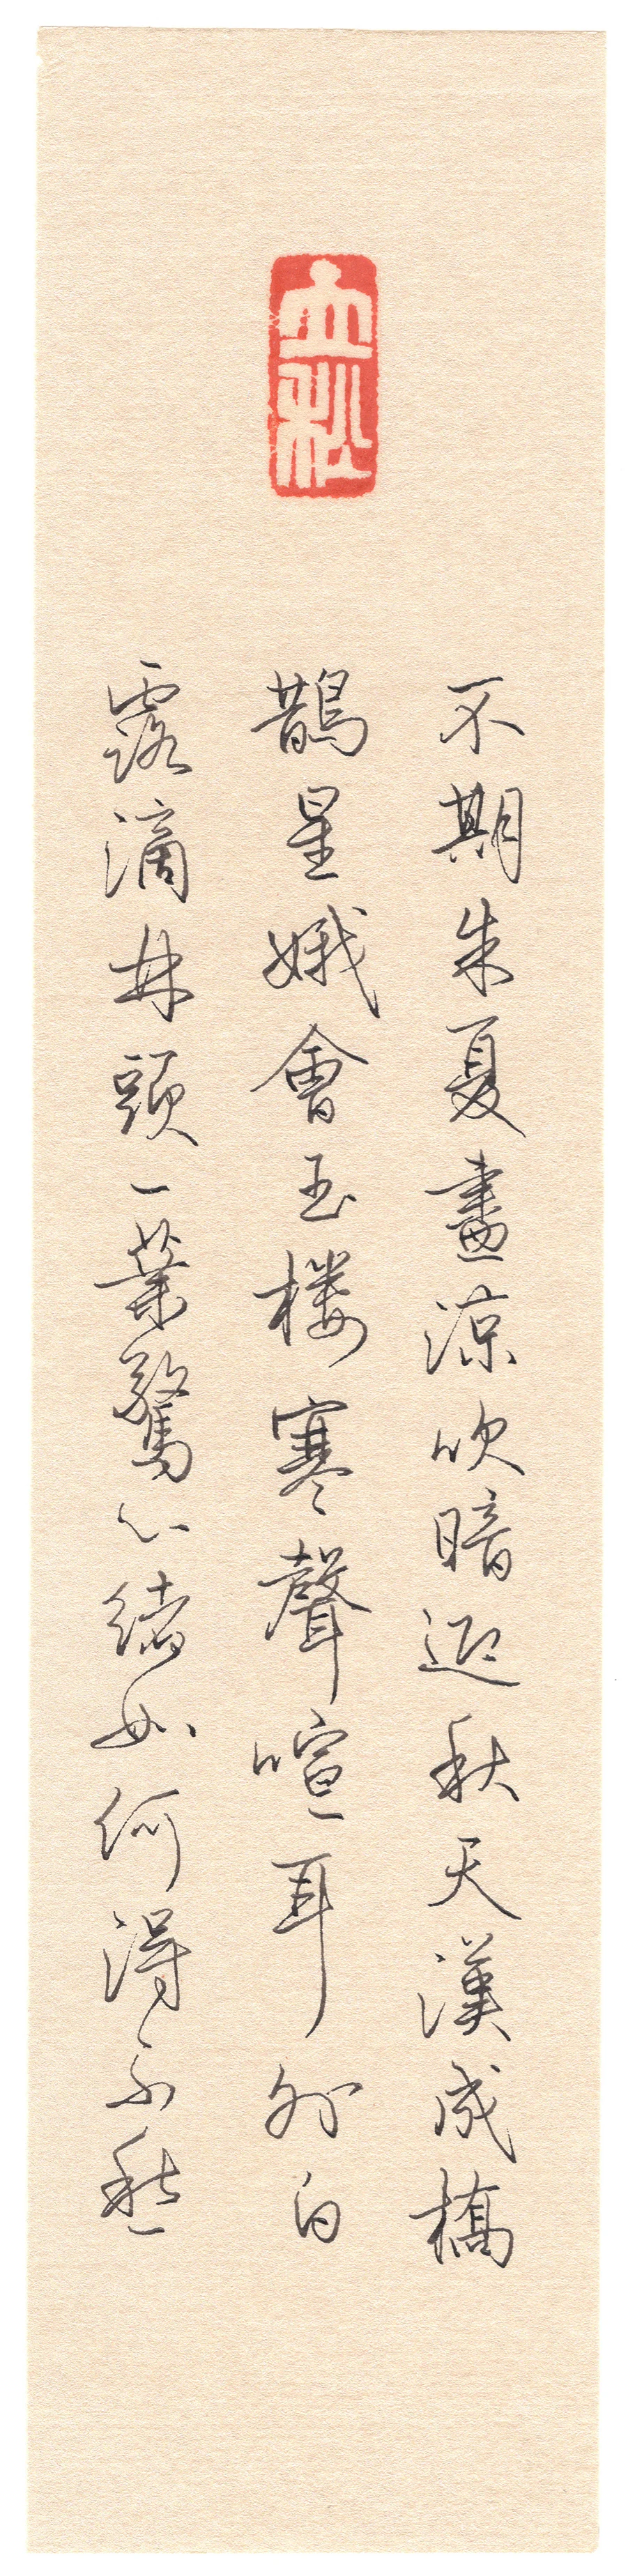 立秋
不期朱夏盡涼吹暗迎秋天漢成橋
鵲星娥會玉楼寒聲喧耳外白
露滴林頭一葉驚心緒如何得不愁